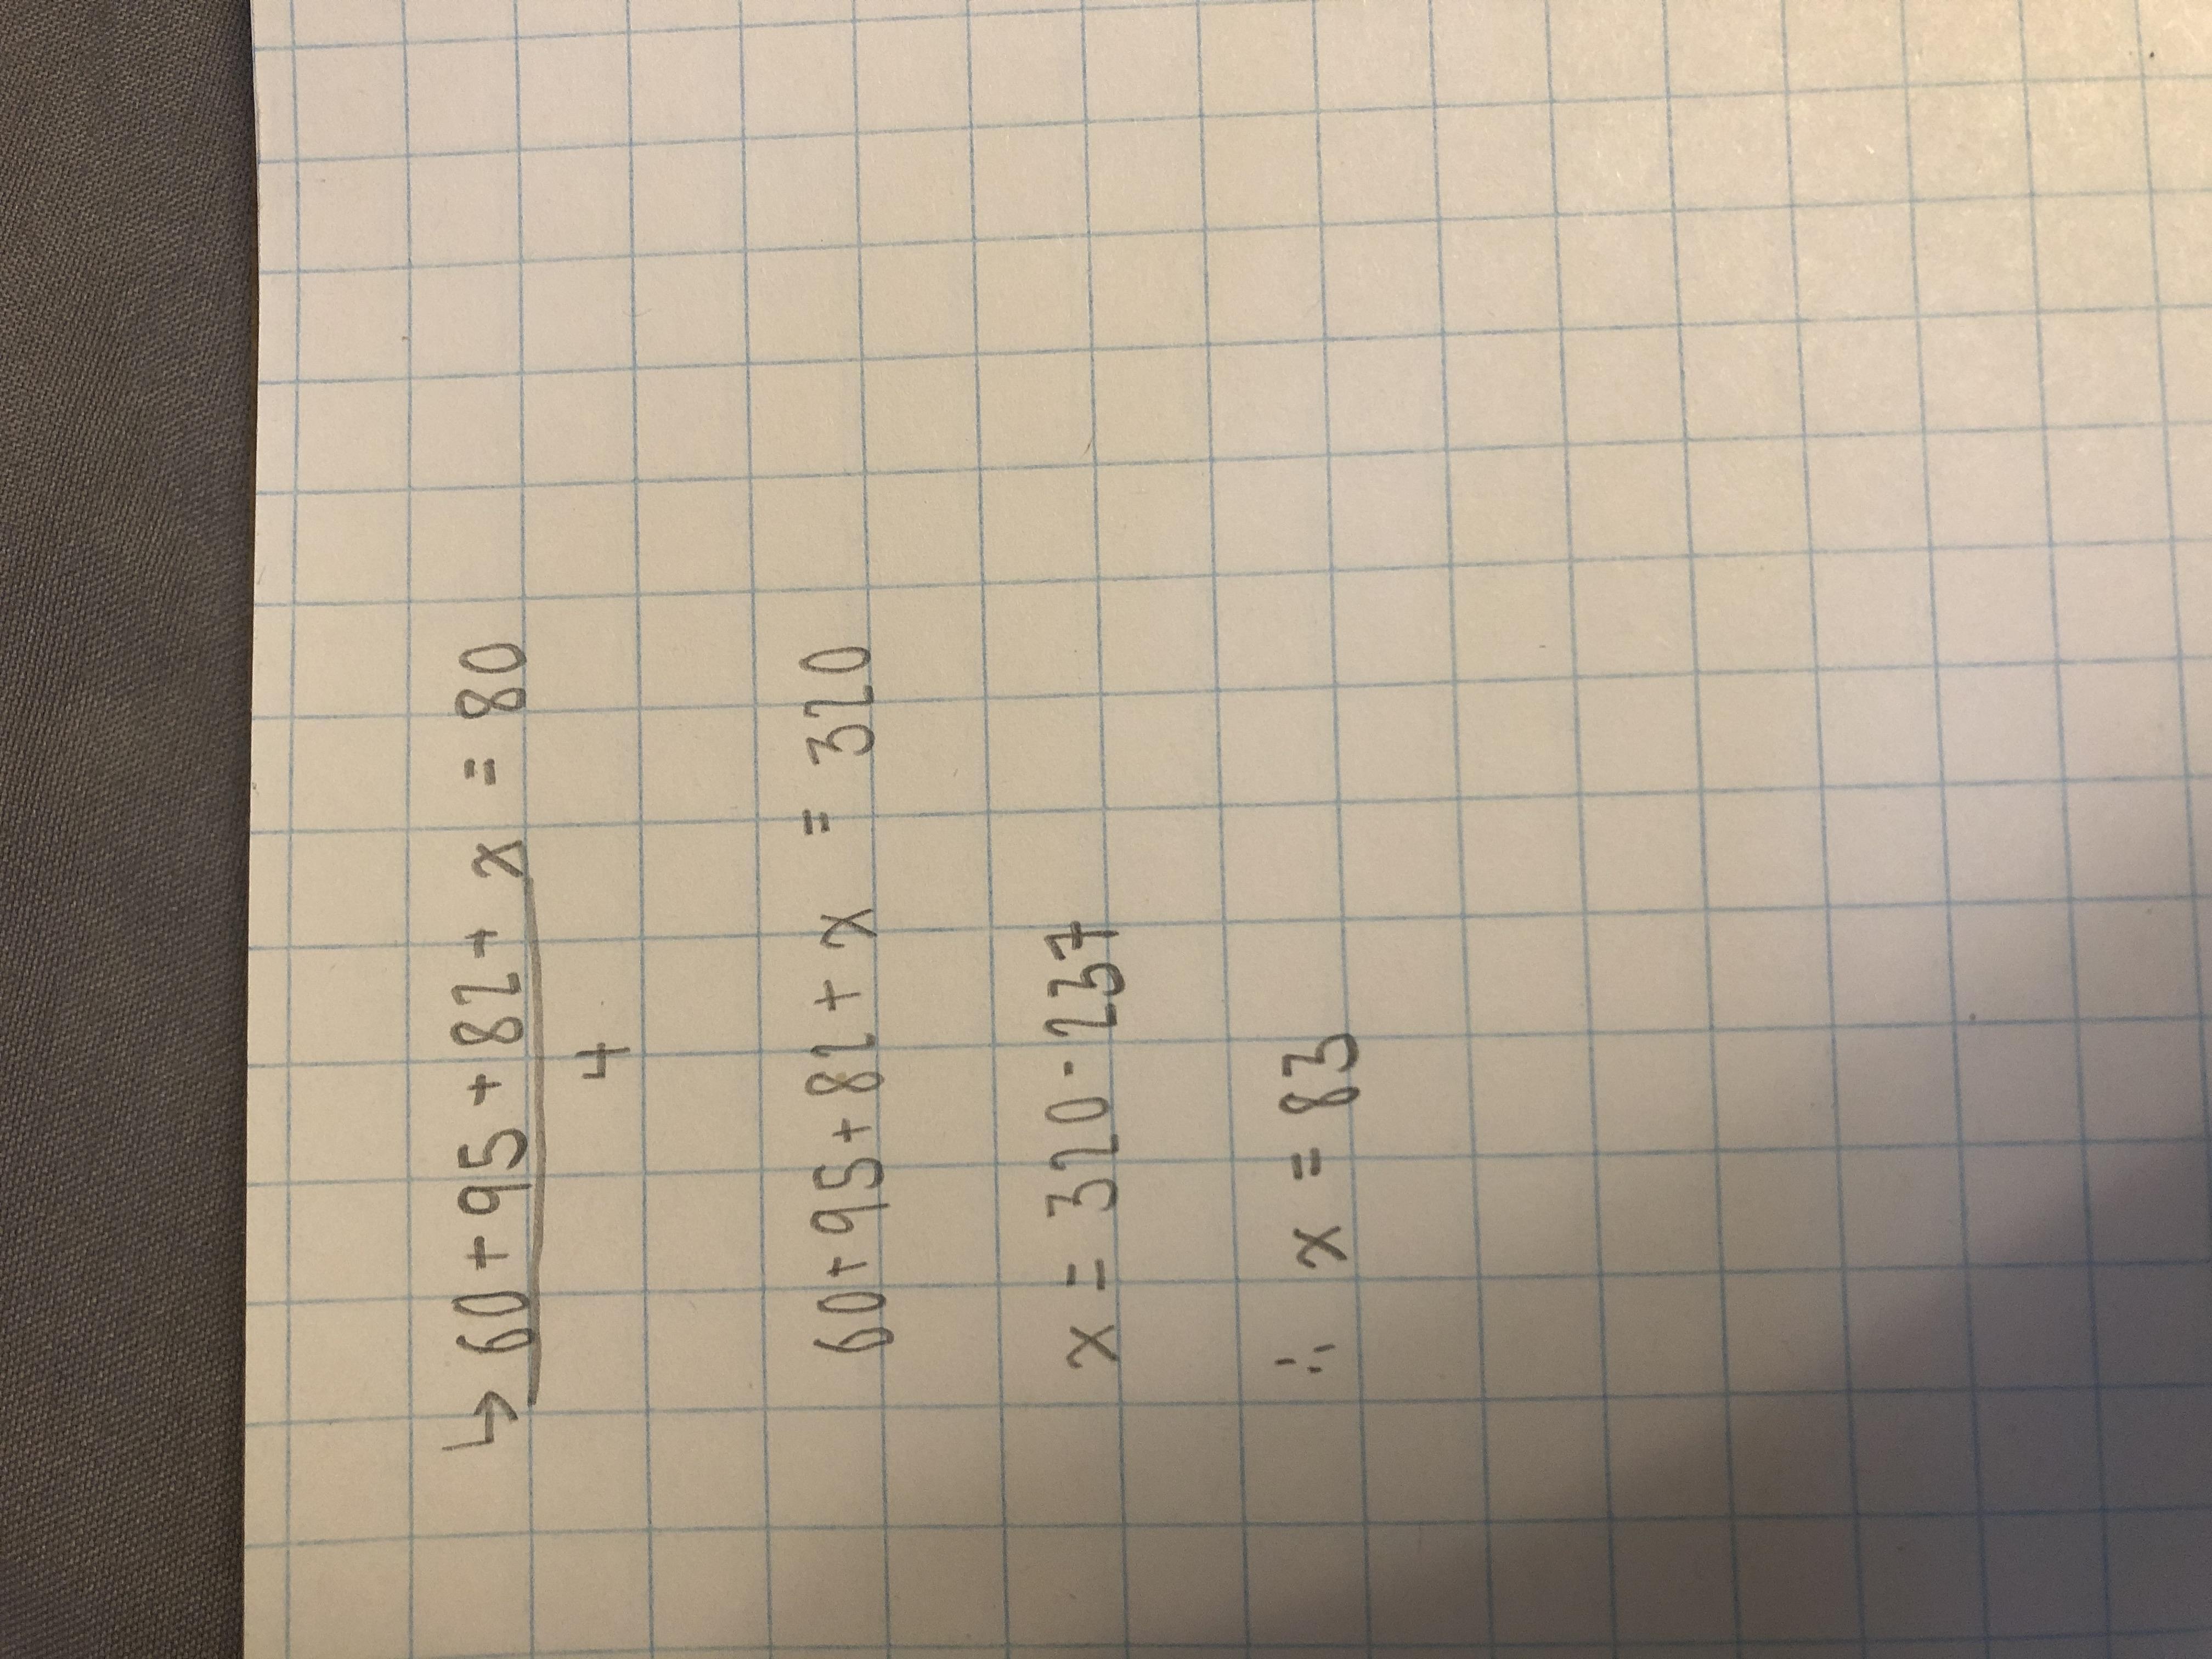 ↳ 60 + 95 + 82 + x = 80
4
60 + 95 + 82 + x = 320
x = 320 - 237
∴ x = 83